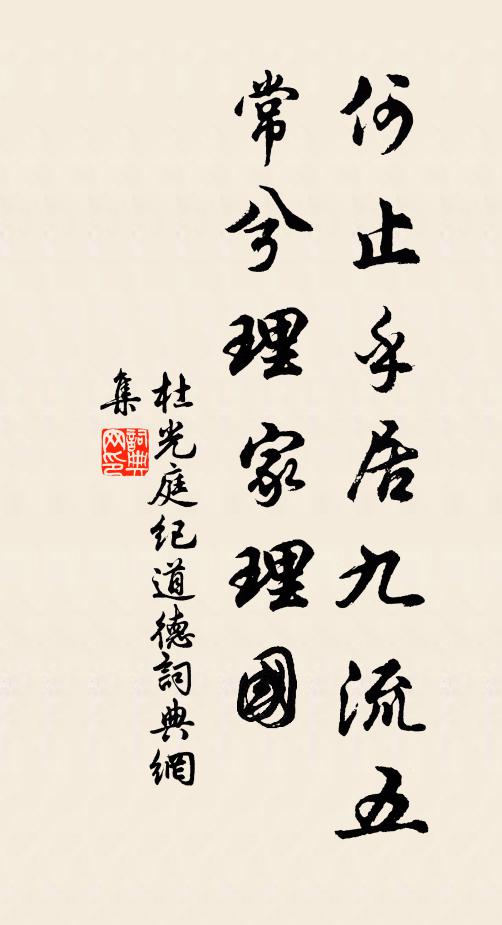 何止乎居九流五
常兮理家理國
杜光庭紀道德詞典網
集
詞典
网印